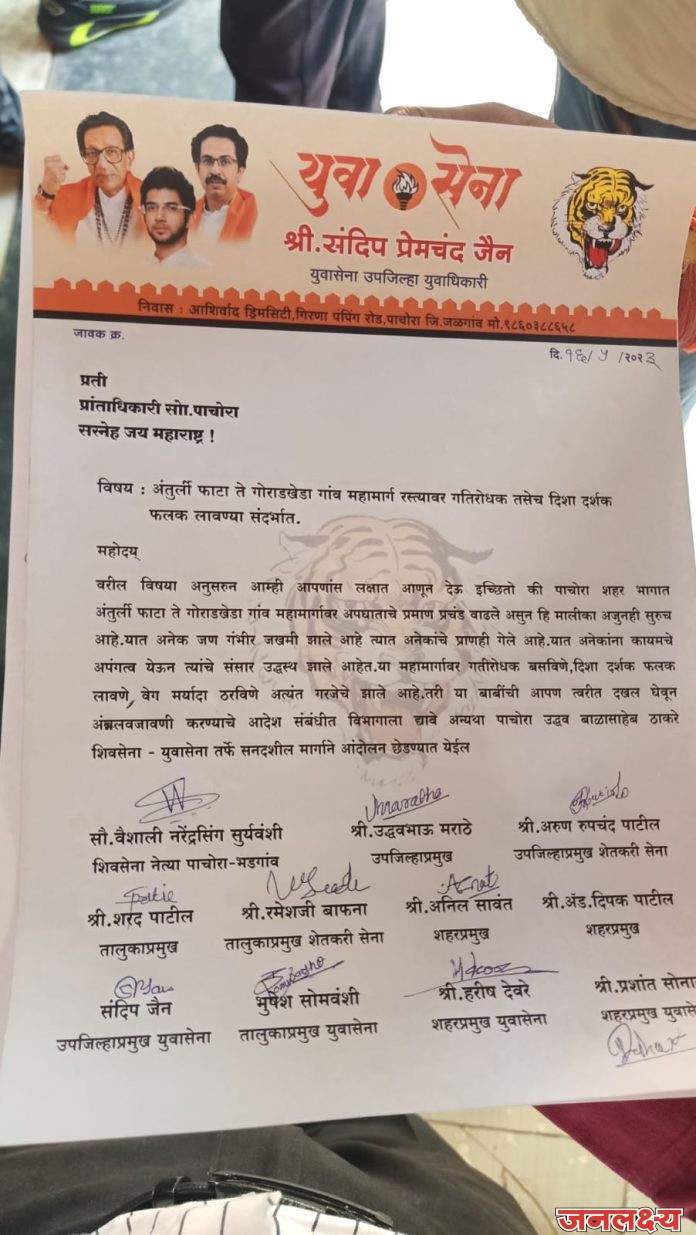 युवा सेना
श्री.संदिप प्रेमचंद जैन
युवासेना उपजिल्हा युवाधिकारी
निवास : आशिर्वाद ड्रिमसिटी,गिरणा पंपिंग रोड,पाचोरा जि.जळगांव मो.९८६०३८८६५८
जावक क्र.
दि.१६/५/२०२३
प्रती
प्रांताधिकारी सोा.पाचोरा
सस्नेह जय महाराष्ट्र !
विषय : अंतुर्ली फाटा ते गोराडखेडा गांव महामार्ग रस्त्यावर गतिरोधक तसेच दिशा दर्शक
फलक लावण्या संदर्भात.
महोदय्
वरील विषया अनुसरुन आम्ही आपणांस लक्षात आणून देऊ इच्छितो की पाचोरा शहर भागात
अंतुर्ली फाटा ते गोराडखेडा गांव महामार्गावर अपघाताचे प्रमाण प्रचंड वाढले असुन हि मालीका अजुनही सुरुच
आहे.यात अनेक जण गंभीर जखमी झाले आहे त्यात अनेकांचे प्राणही गेले आहे.यात अनेकांना कायमचे
अपंगत्व येऊन त्यांचे संसार उद्धस्थ झाले आहेत.या महामार्गावर गतीरोधक बसविणे,दिशा दर्शक फलक
लावणे, वेग मर्यादा ठरविणे अत्यंत गरजेचे झाले आहे.तरी या बाबींची आपण त्वरीत दखल घेवून
अंमलवजावणी करण्याचे आदेश संबंधीत विभागाला द्यावे अन्यथा पाचोरा उद्धव बाळासाहेब ठाकरे
शिवसेना - युवासेना तर्फे सनदशील मार्गाने आंदोलन छेडण्यात येईल
सौ.वैशाली नरेंद्रसिंग सुर्यवंशी श्री.उद्धवभाऊ मराठे श्री.अरुण रुपचंद पाटील
शिवसेना नेत्या पाचोरा-भडगांव उपजिल्हाप्रमुख उपजिल्हाप्रमुख शेतकरी सेना
श्री.शरद पाटील श्री.रमेशजी बाफना श्री.अनिल सावंत श्री.ॲड.दिपक पाटील
तालुकाप्रमुख तालुकाप्रमुख शेतकरी सेना शहरप्रमुख शहरप्रमुख
संदिप जैन भुषेश सोमवंशी श्री.हरीष देवरे श्री.प्रशांत सोना
उपजिल्हाप्रमुख युवासेना तालुकाप्रमुख युवासेना शहरप्रमुख युवासेना शहरप्रमुख युवासे
जनलक्ष्य